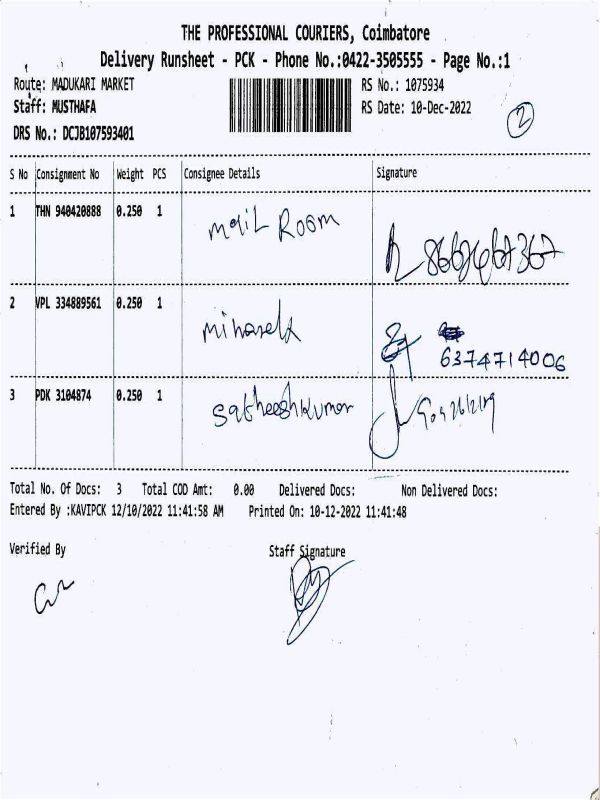 THE PROFESSIONAL COURIERS, Coimbatore
Delivery Runsheet - PCK - Phone No.:0422-3505555 - Page No.:1
Route: MADUKARI MARKET RS No.: 1075934
Staff: MUSTHAFA RS Date: 10-Dec-2022
DRS No.: DCJB107593401
2
S No Consignment No Weight PCS Consignee Details Signature
1 THN 940420888 0.250 1 Mail Room
2 VPL 334889561 0.250 1
6374714006
3 PDK 3104874 0.250 1 Satheeshkumar
Total No. Of Docs: 3 Total COD Amt: 0.00 Delivered Docs: Non Delivered Docs:
Entered By :KAVIPCK 12/10/2022 11:41:58 AM Printed On: 10-12-2022 11:41:48
Verified By Staff Signature